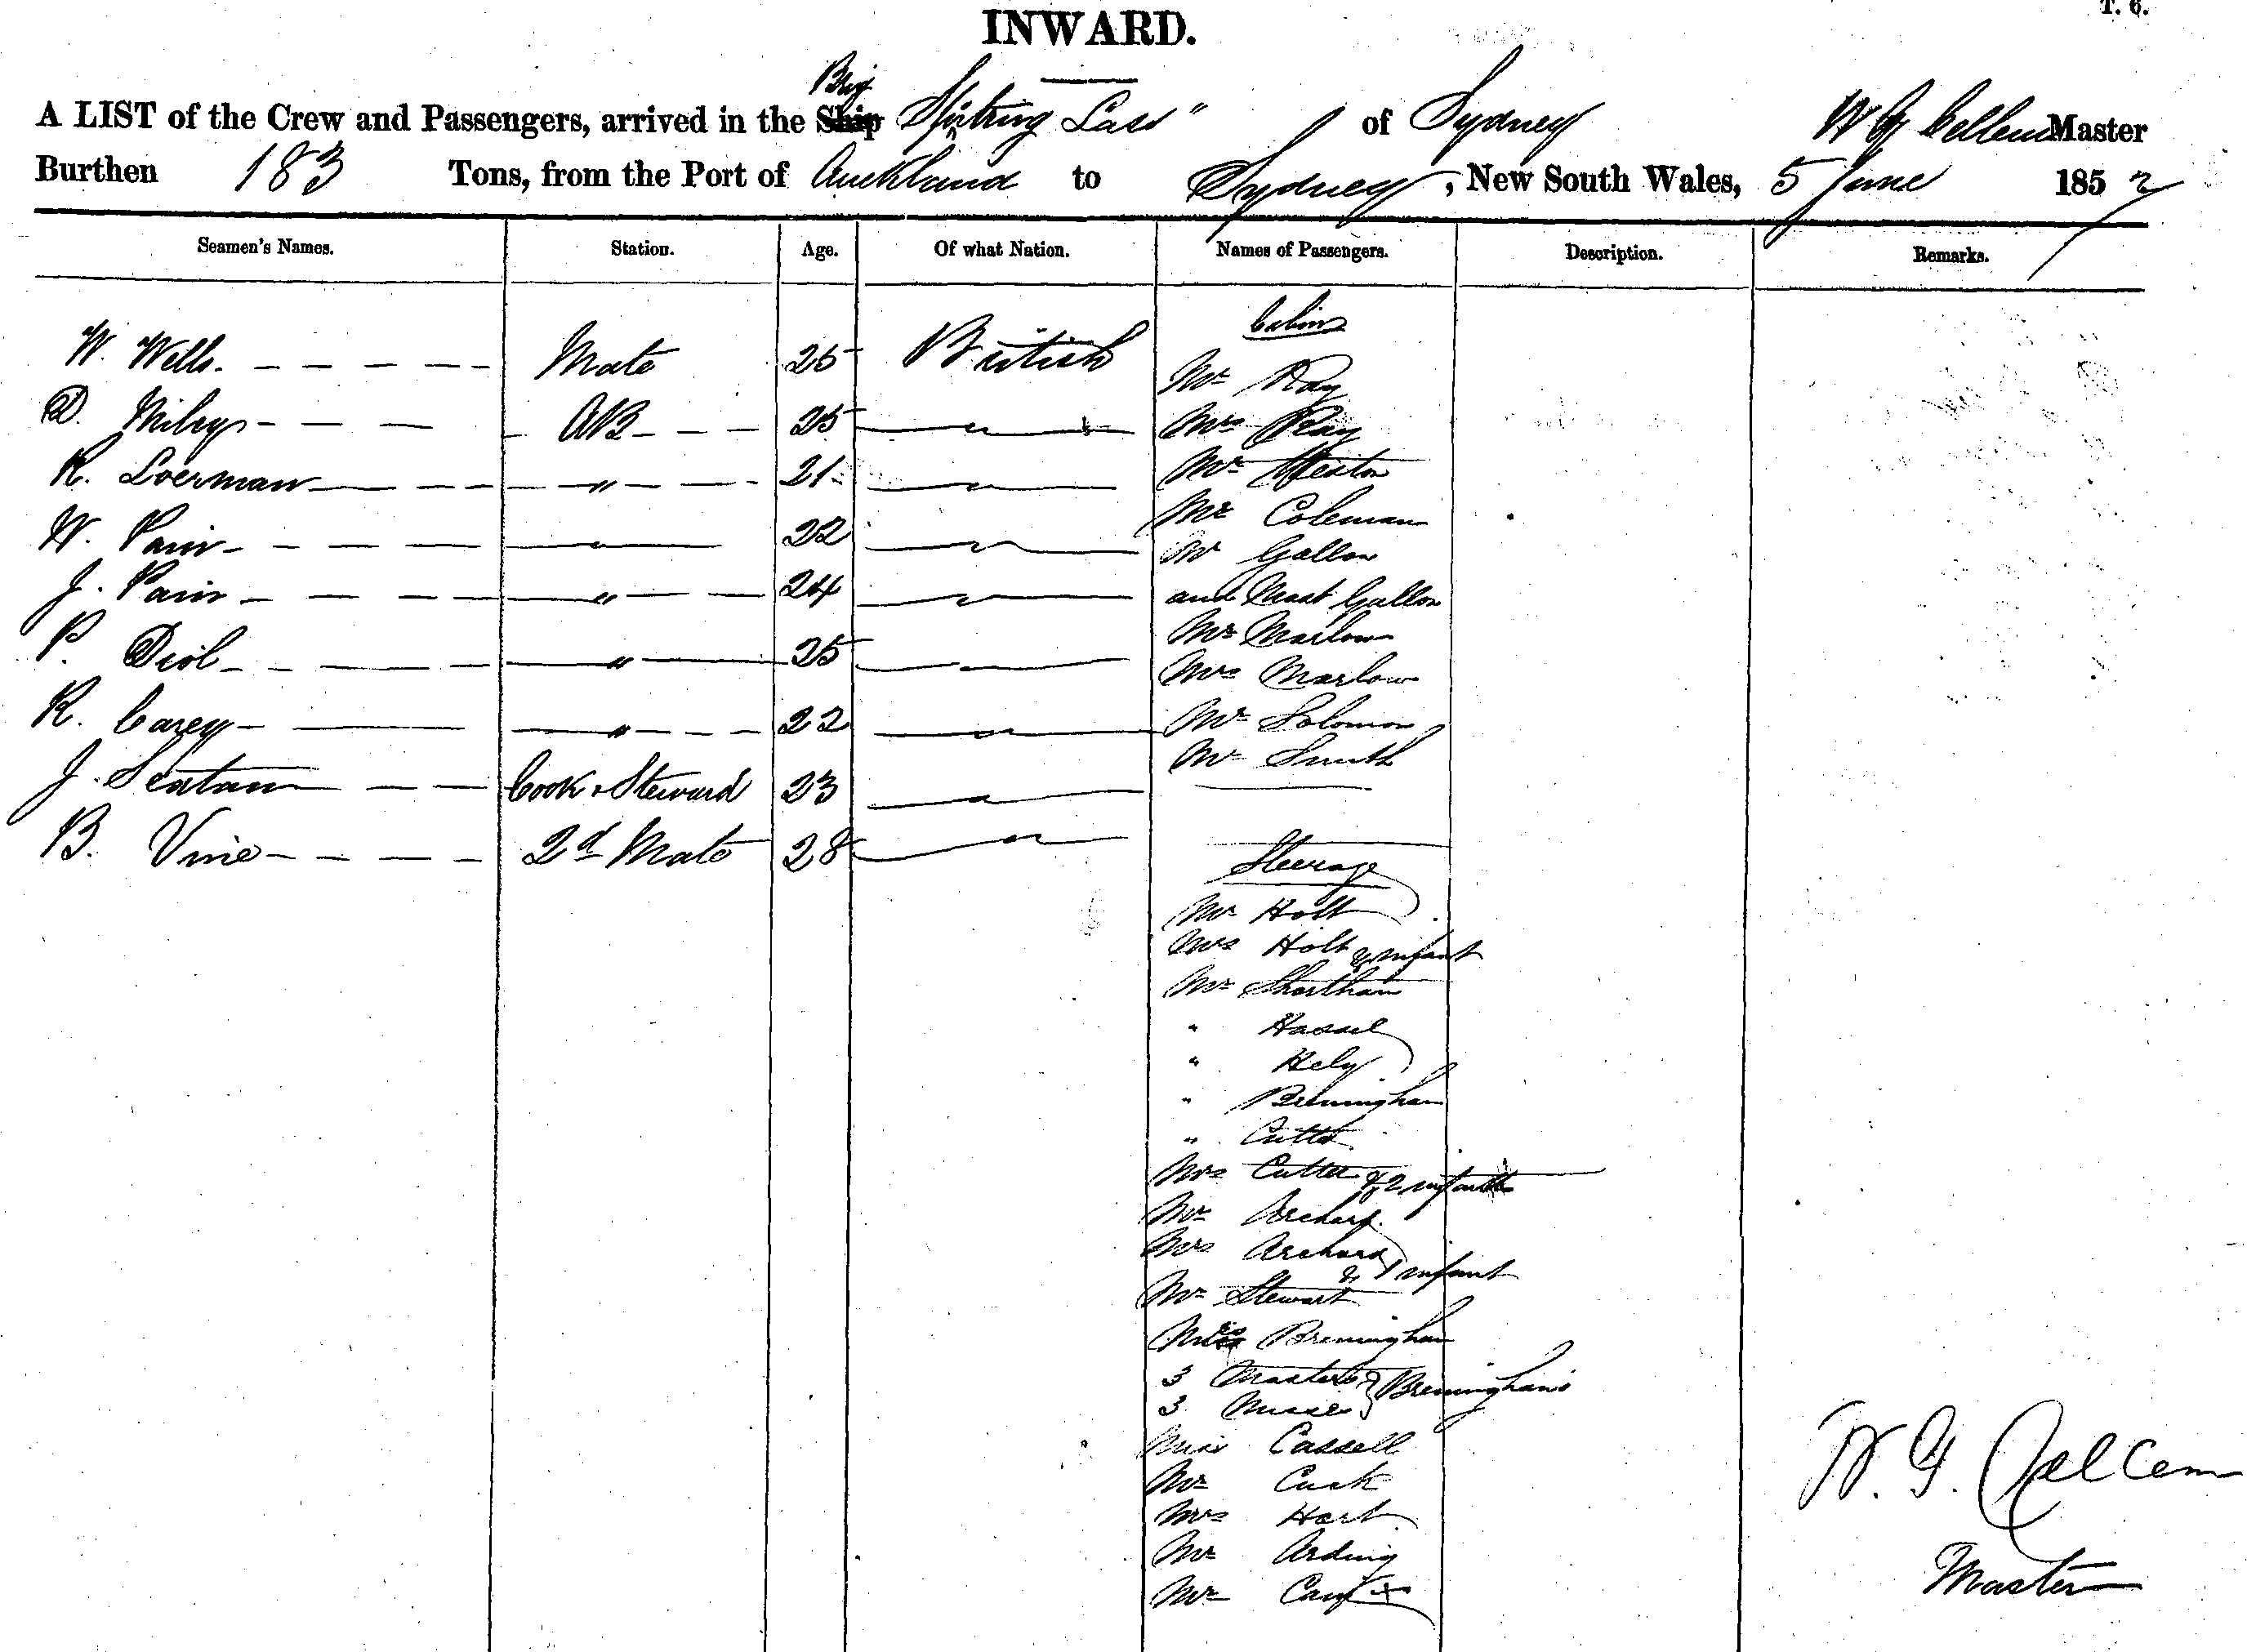 T. 6.
INWARD.
Brig
A LIST of the Crew and Passengers, arrived in the Ship Spitring Lass" of Sydney W G Cellem Master
Burthen 183 Tons, from the Port of Auckland to Sydney, New South Wales, 5 June 1857
Seamen's Names. Station. Age. Of what Nation. Names of Passengers. Description. Remarks.
Cabin
W. Wells Mate 25 British Mr Ray
D. AB 25 " Mrs Ray
R. Loerman " 21 " Mr
Mr Coleman
W. Pain " 22 " Mr Gallon
J. Pain " 24 " and Mast Gallon
Mr Marlow
P. " 25 " Mrs Marlow
R. Carey " 22 " Mr Solomon
Mr Smith
J. Seatan Cook & Steward 23 "
B. Vine 2d Mate 28 "
Steerage
Mr Holt
Mrs Holt & infant
Mr Shortham
" Hassel
" Hely
" Breminghan
" Cutter
Mrs Cutter & 2 infants
Mr Archard
Mrs Archard
& 1 infant
Mr Stewart
Mrs Breminghan
3 Masters } Breminghans
3 Misses
Miss Cassell
Mr Cusk
Mrs Hart
Mr Arding
Mr
W. G.
Master